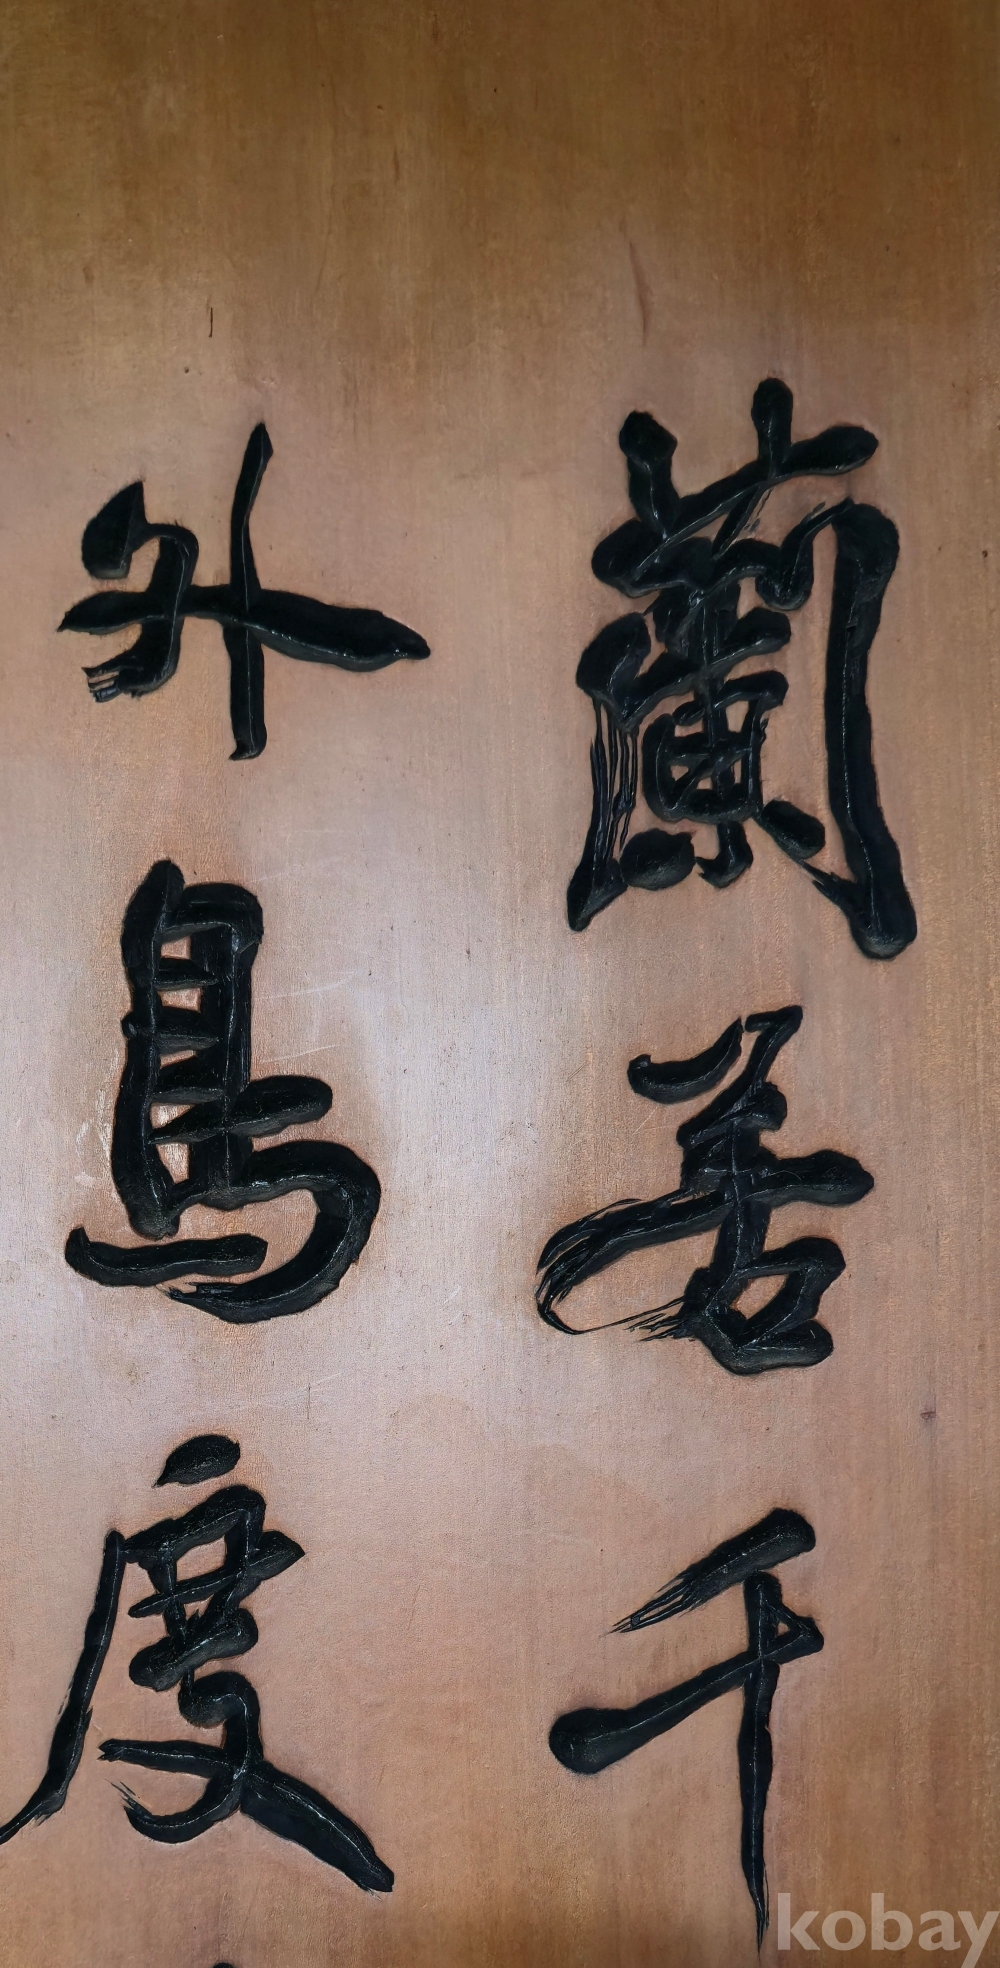 蘭若千
外鳥度
kobay